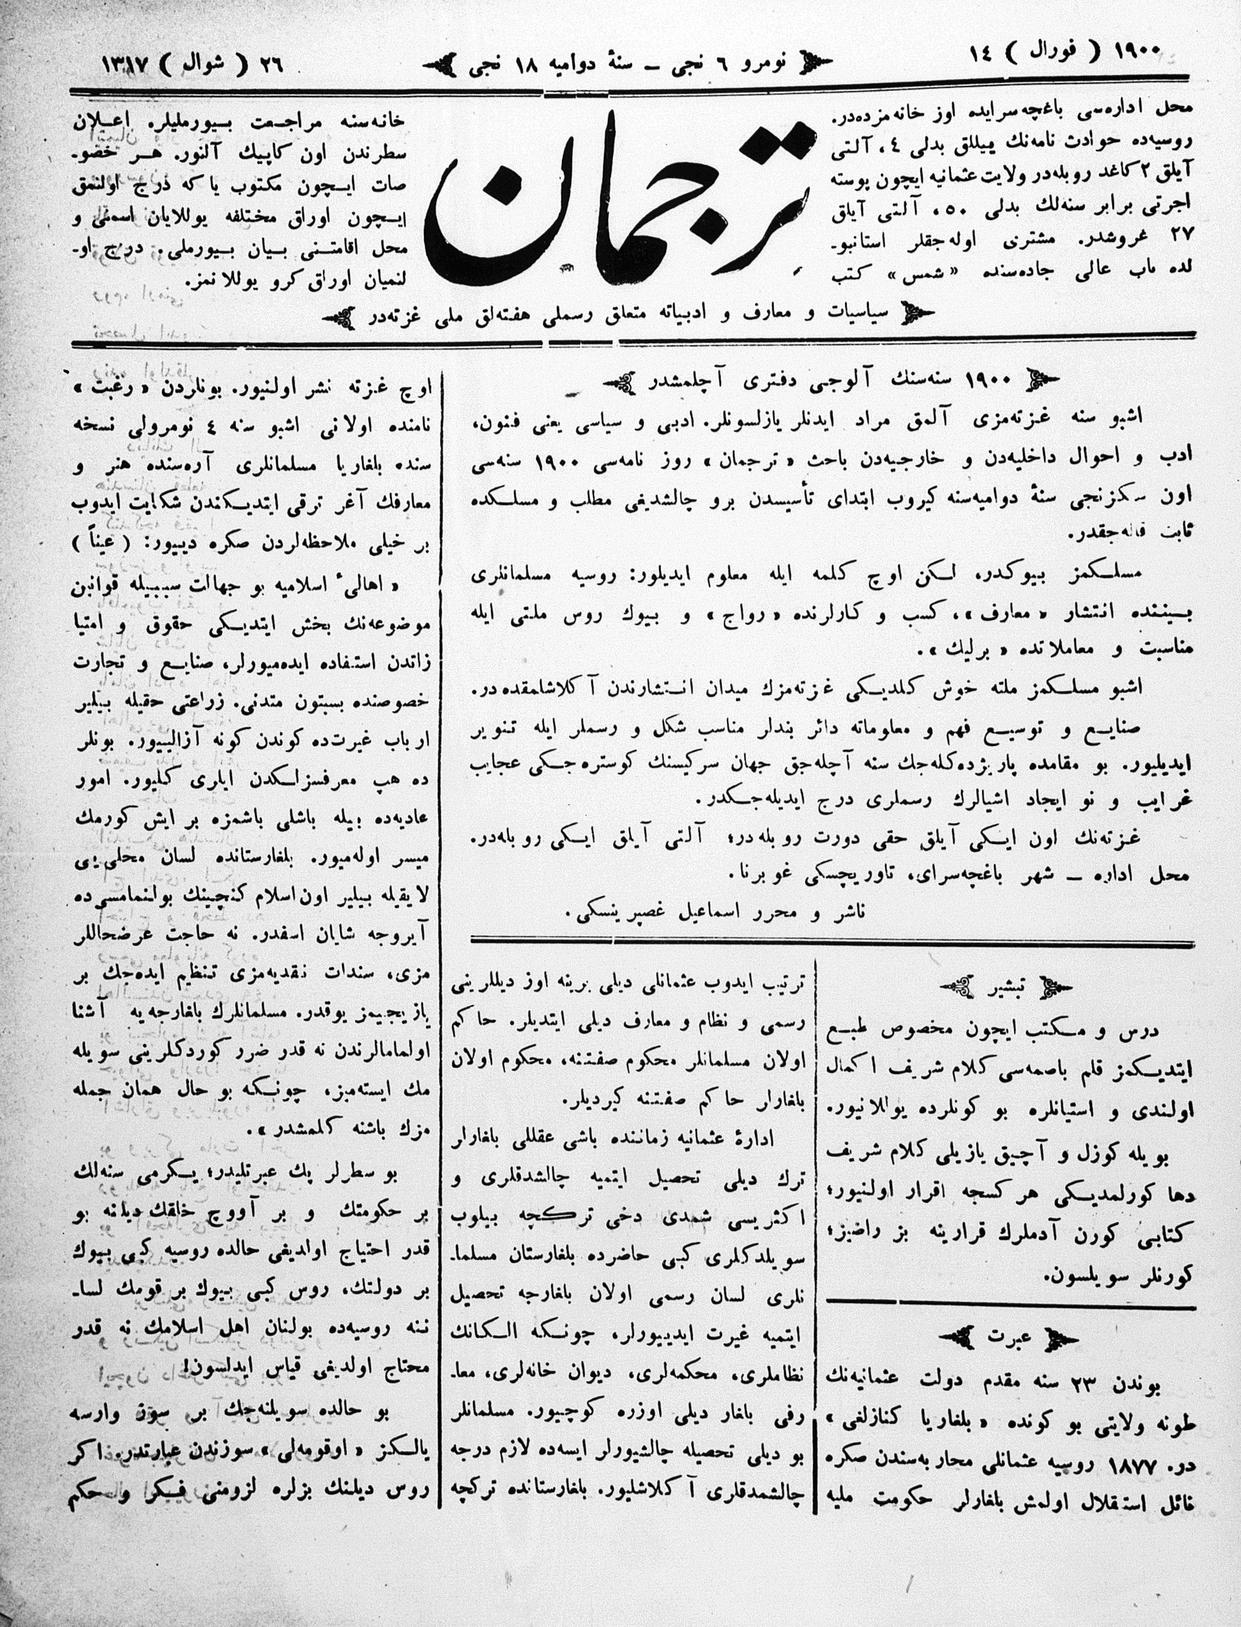 ١٩٠٠ ( فورال ) ١٤
نومرو ٦ نجی ـ سنۀ دوامیه ١٨ نجی
٢٦ ( شوال ) ١٣١٧
محل اداره‌سی باغچه‌سرایده اوز خانه‌مزده‌در.
روسیه‌ده حوادث نامه‌نك ییللق بدلی ٤، آلتی
آیلق ٢ كاغد روبله‌در ولایت عثمانیه ایچون پوسته
اجرتی برابر سنه‌لك بدلی ٥٠، آلتی آیلق
٢٧ غروشدر. مشتری اوله‌جقلر استانبو۔
لده باب عالی جاده‌سنده «شمس» كتب
ترجمان
خانه‌سنه مراجعت بیورملیلر. اعلان
سطرندن اون كاپیك آلنور. هر خصو۔
صات ایچون مكتوب یا كه درج اولنمق
ایچون اوراق مختلفه یوللایان اسمنی و
محل اقامتنی بیان بیورملی. درج او۔
لنمیان اوراق كرو یوللانمز.
سیاسیات و معارف و ادبیاته متعلق رسملی هفته‌لق ملی غزته‌در
١٩٠٠ سنه‌سنك آلوجی دفتری آچلمشدر
اشبو سنه غزته‌مزی آلمق مراد ایدنلر یازلسونلر. ادبی و سیاسی یعنی فنون،
ادب و احوال داخلیه‌دن و خارجیه‌دن باحث «ترجمان» روز نامه‌سی ١٩٠٠ سنه‌سی
اون سكزنجی سنۀ دوامیه‌سنه كیروب ابتدای تأسیسدن برو چالشدیغی مطلب و مسلكده
ثابت قاله‌جقدر.
مسلكمز بیوكدر، لكن اوچ كلمه ایله معلوم ایدیلور: روسیه مسلمانلری
بیننده انتشار «معارف»، كسب و كارلرنده «رواج» و بیوك روس ملتی ایله
مناسبت و معاملاتده «برلیك».
اشبو مسلكمز ملته خوش كلدیكی غزته‌مزك میدان انتشارندن آكلاشلمقده‌در.
صنایع و توسیع فهم و معلوماته دائر بندلر مناسب شكل و رسملر ایله تنویر
ایدیلیور. بو مقامده پاریژده كله‌جك سنه آچله‌جق جهان سركیسنك كوستره‌جكی عجایب
غرایب و نو ایجاد اشیالرك رسملری درج ایدیله‌جكدر.
غزته‌نك اون ایكی آیلق حقی دورت روبله‌در؛ آلتی آیلق ایكی روبله‌در.
محل اداره ـ شهر باغچه‌سرای، تاوریچسكی غوبرنا.
ناشر و محرر اسماعیل غصپرینسكی.
تبشیر
درس و مكتب ایچون مخصوص طبع
ایتدیكمز قلم باصمه‌سی كلام شریف اكمال
اولندی و استیانلره بو كونلرده یوللانیور.
بویله كوزل و آچیق یازیلی كلام شریف
دها كورلمدیكی هر كسجه اقرار اولنیور؛
كتابی كورن آدملرك قرارینه بز راضیز؛
كورنلر سویلسون.
عبرت
بوندن ٢٣ سنه مقدم دولت عثمانیه‌نك
طونه ولایتی بو كونده «بلغاریا كنازلغی»
در. ١٨٧٧ روسیه عثمانلی محاربه‌سندن صكره
نائل استقلال اولمش بلغارلر حكومت ملیه
ترتیب ایدوب عثمانلی دیلی یرینه اوز دیللرینی
رسمی و نظام و معارف دیلی ایتدیلر. حاكم
اولان مسلمانلر محكوم صفتنه، محكوم اولان
بلغارلر حاكم صفتنه كیردیلر.
ادارۀ عثمانیه زماننده باشی عقللی بلغارلر
ترك دیلی تحصیل ایتمیه چالشدقلری و
اكثریسی شمدی دخی تركچه بیلوب
سویلدكلری كبی حاضرده بلغارستان مسلما۔
نلری لسان رسمی اولان بلغارجه تحصیل
ایتمیه غیرت ایدییورلر، چونكه الكانك
نظاملری، محكمه‌لری، دیوان خانه‌لری، معا۔
رفی بلغار دیلی اوزره كوچیور. مسلمانلر
بو دیلی تحصیله چالشیورلر ایسه‌ده لازم درجه
چالشمدقلری آكلاشلیور. بلغارستانده تركچه
اوچ غزته نشر اولنیور. بونلردن «رغبت»
نامنده اولانی اشبو سنه ٤ نومرولی نسخه
سنده بلغاریا مسلمانلری آره‌سنده هنر و
معارفك آغر ترقی ایتدیكندن شكایت ایدوب
بر خیلی ملاحظه‌لردن صكره دییور: (عیناً)
«اهالیٔ اسلامیه بو جهالت سببیله قوانین
موضوعه‌نك بخش ایتدیكی حقوق و امتیا
زاتدن استفاده ایده‌میورلر، صنایع و تجارت
خصوصنده بسبتون متدنی. زراعتی حقیله بیلیر
ارباب غیرت‌ده كوندن كونه آزالیور. بونلر
ده هپ معرفسزلكدن ایلری كلیور. امور
عادیه‌ده بیله باشلی باشمزه بر ایش كورمك
میسر اوله‌میور. بلغارستانده لسان محلی‌یی
لایقیله بیلیر اون اسلام كنجینك بولنمامسی‌ده
آیروجه شایان اسفدر. نه حاجت عرضحاللر
مزی، سندات نقدیه‌مزی تنظیم ایده‌جك بر
یازیجیمز یوقدر. مسلمانلرك بلغارجه‌یه آشنا
اولمامالرندن نه قدر ضرر كوردكلرینی سویله
مك ایسته‌میز، چونكه بو حال همان جمله
مزك باشنه كلمشدر».
بو سطرلر پك عبرتلیدر؛ یكرمی سنه‌لك
بر حكومتك و بر آووچ خلقك دیلنه بو
قدر احتیاج اولدیغی حالده روسیه كبی بیوك
بر دولتك، روس كبی بیوك بر قومك لسا۔
ننه روسیه‌ده بولنان اهل اسلامك نه قدر
محتاج اولدیغی قیاس ایدلسون!
بو حالده سویلنه‌جك بر سوز وارسه
یالكز «اوقومه‌لی» سوزندن عبارتدر. اكر
روس دیلنك بزلره لزومنی فیكر و حكم